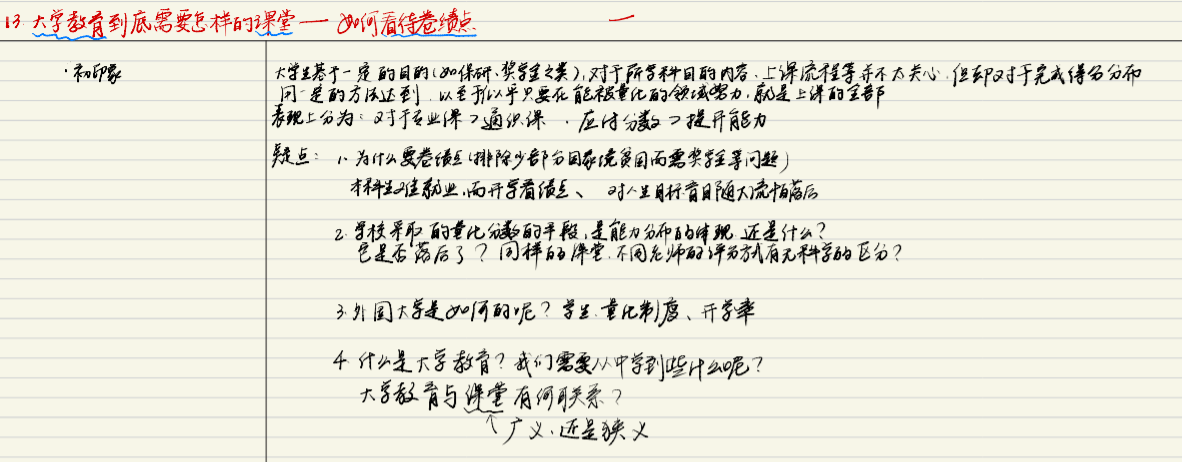 13. 大学教育到底需要怎样的课堂 — 如何看待卷绩点 —
· 初印象
大学生基于一定的目的(如保研、奖学金之类),对于所学科目的内容、上课流程等并不太关心,但却对于完成得分分布
同一定的方法达到,以至于似乎只要在能被量化的领域努力,就是上课的全部
表现上分为:对于专业课>通识课 · 应付分数>提升能力
疑点: 1. 为什么要卷绩点(排除少部分因家境贫困而需奖学金等问题)
本科生难就业,而升学看绩点、 对人生目标盲目随大流怕落后
2. 学校采取的量化分数的手段,是能力分布的体现 还是什么?
它是否落后了? 同样的课堂,不同老师的评分方式有无科学的区分?
3. 外国大学是如何的呢? 学生、量化制度、升学率
4. 什么是大学教育? 我们需要从中学到些什么呢?
大学教育与课堂有何联系?
↑广义、还是狭义